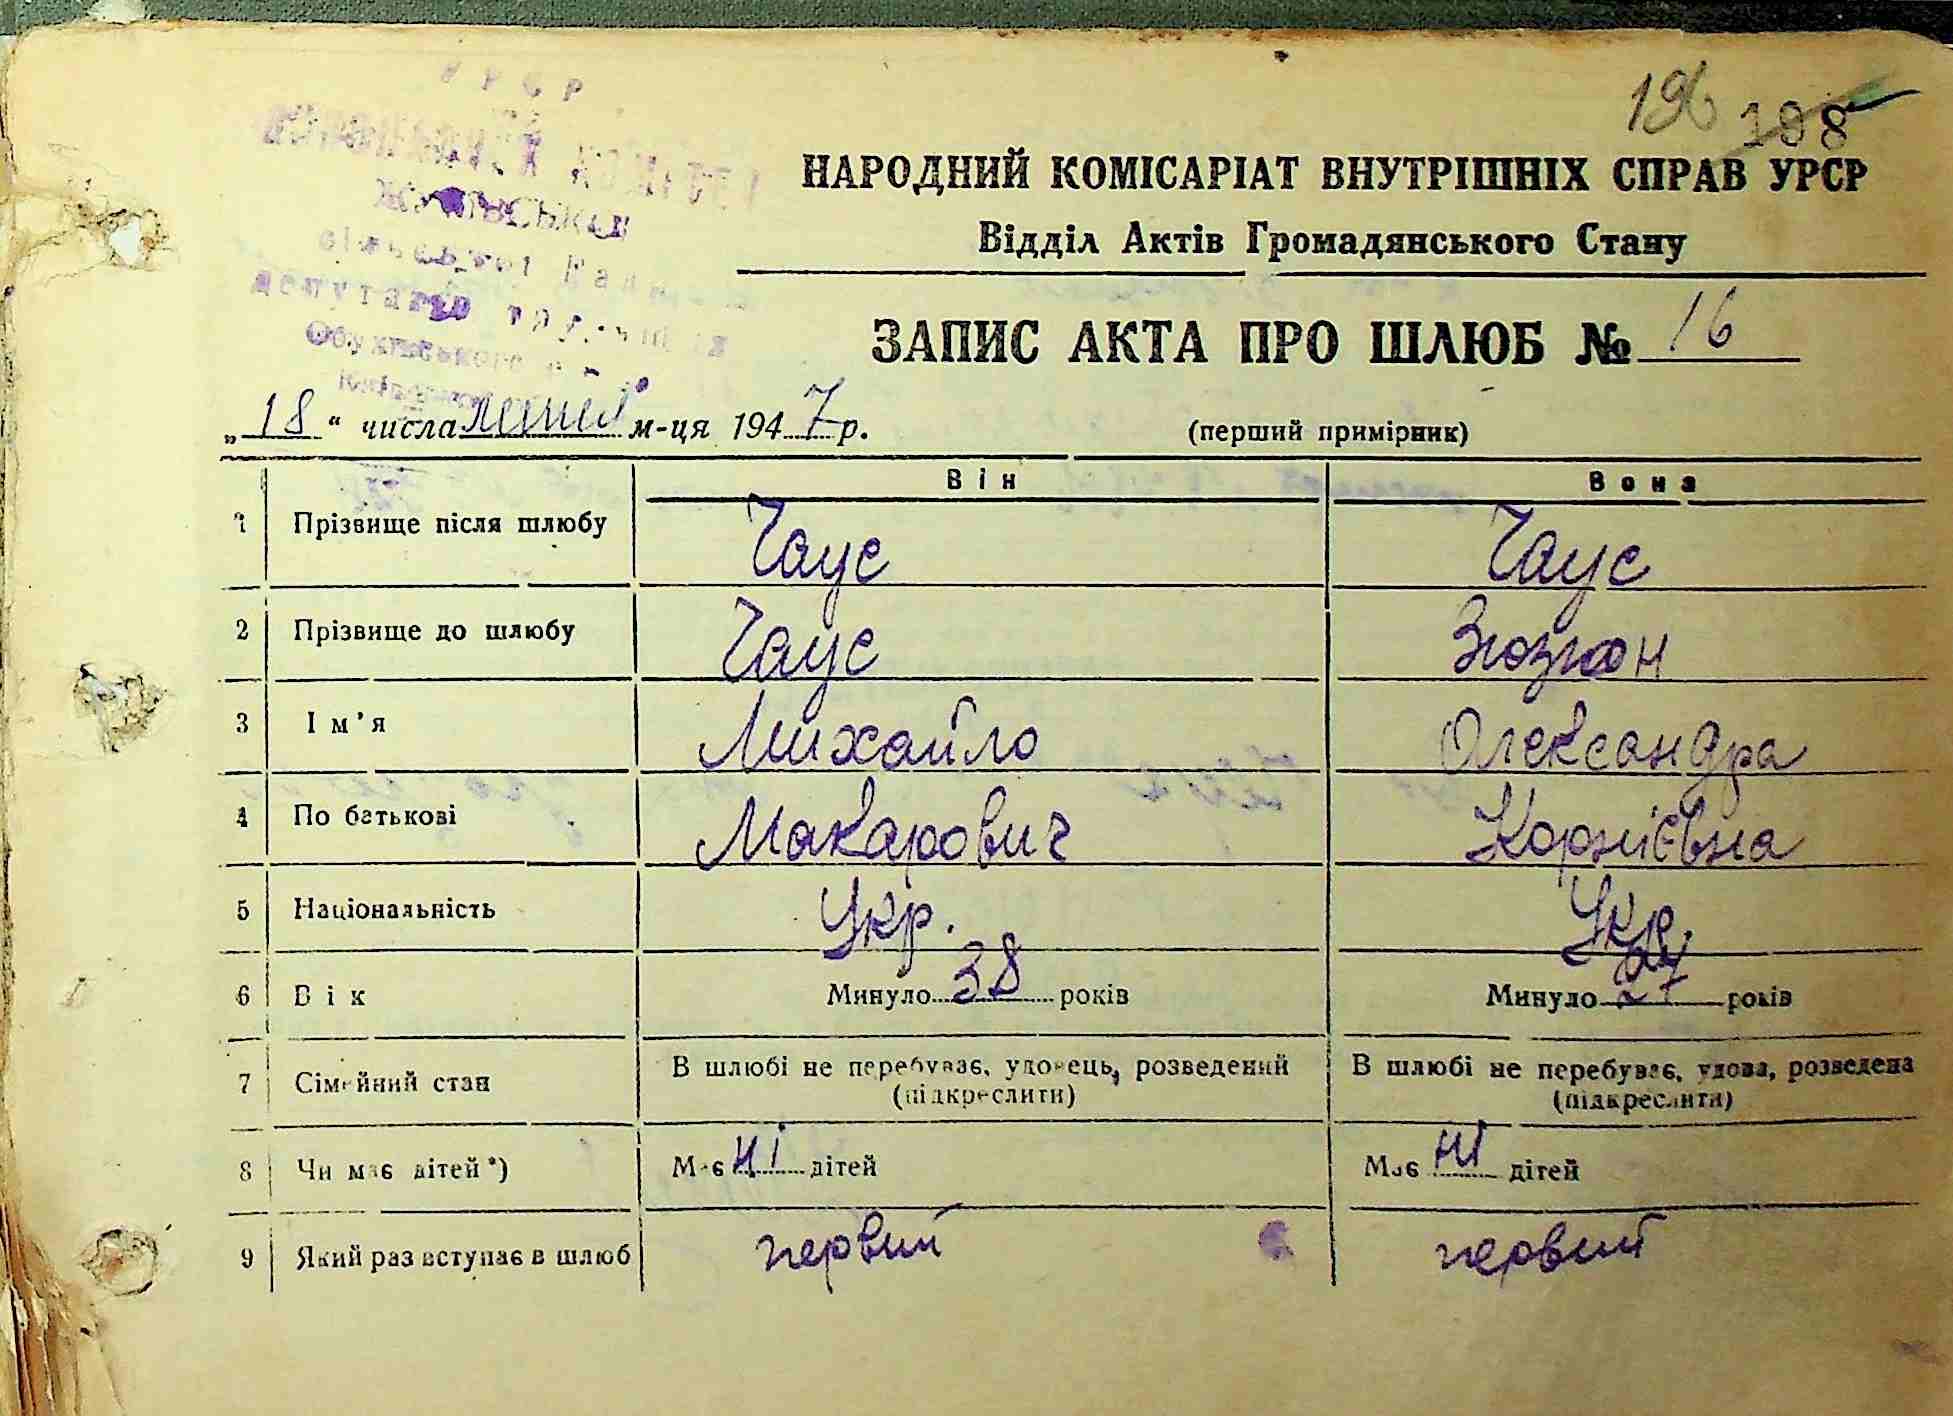 УРСР
сільської Ради
депутатів трудящих
Обухівського
196 198
НАРОДНИЙ КОМІСАРІАТ ВНУТРІШНІХ СПРАВ УРСР
Відділ Актів Громадянського Стану
ЗАПИС АКТА ПРО ШЛЮБ № 16
„18“ числа липня м-ця 1947 р. (перший примірник)
Він Вона
1 Прізвище після шлюбу Чаус Чаус
2 Прізвище до шлюбу Чаус Зюзюн
3 Ім'я Михайло Олександра
4 По батькові Макарович Корнієвна
5 Національність Укр. Укр.
6 Вік Минуло 38 років Минуло 27 років
7 Сімейний стан В шлюбі не перебуває, удовець, розведений В шлюбі не перебуває, удова, розведена
(підкреслити) (підкреслити)
8 Чи має дітей*) Має ні дітей Має ні дітей
9 Який раз вступає в шлюб первий первий